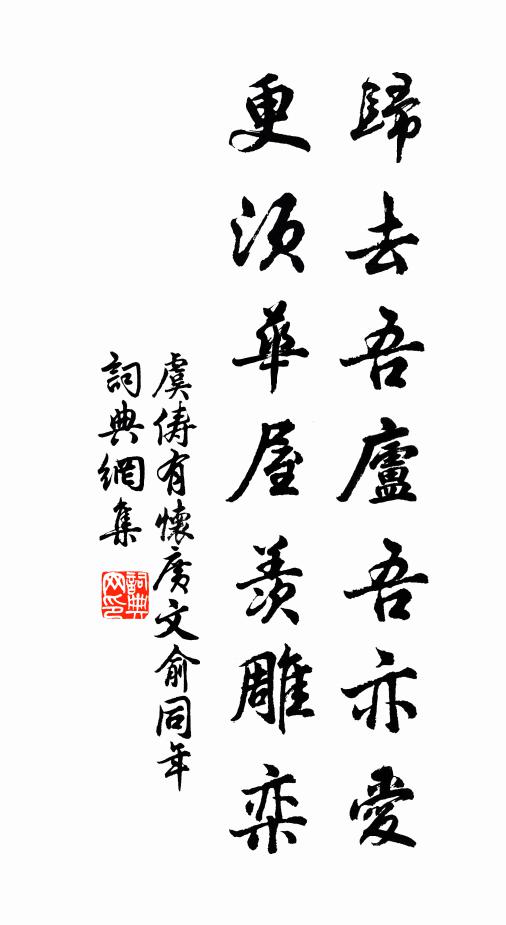 歸去吾廬吾亦愛
更須華屋羨雕栾
虞儔有懷廣文俞同年
詞典網集
詞典
网印